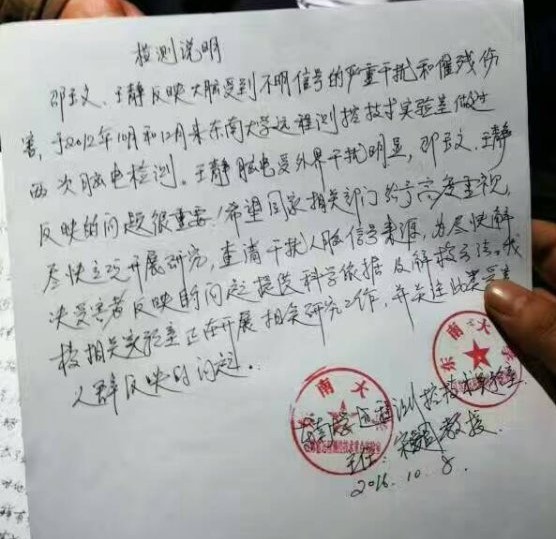 检测说明
邵玉文、王静反映大脑受到不明信号的严重干扰和催残伤
害，于2012年10月和12月来东南大学远程测控技术实验室做过
两次脑电检测。王静脑电受外界干扰明显，邵玉文、王静
反映的问题很重要！希望国家相关部门给予高度重视，
尽快立项开展研究，查清干扰人脑信号来源，为尽快解
决受害者反映的问题提供科学依据及解救方法。我
校相关实验室正在开展相关研究工作，并关注此类受害
人群反映的问题。
远程测控技术实验室
主任：教授
2016.10.8.
东南大